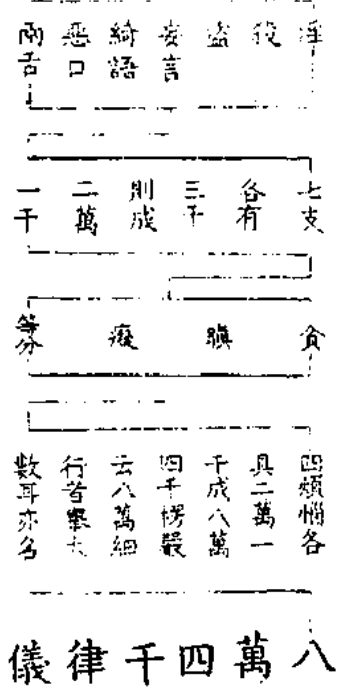 淫
殺
盜
妄言
綺語
惡口
兩舌
七支
各有
三千
則成
二萬
一千
貪
瞋
癡
等分
四煩惱各
具二萬一
千成八萬
四千楞嚴
云八萬細
行者舉大
數耳亦名
八萬四千律儀